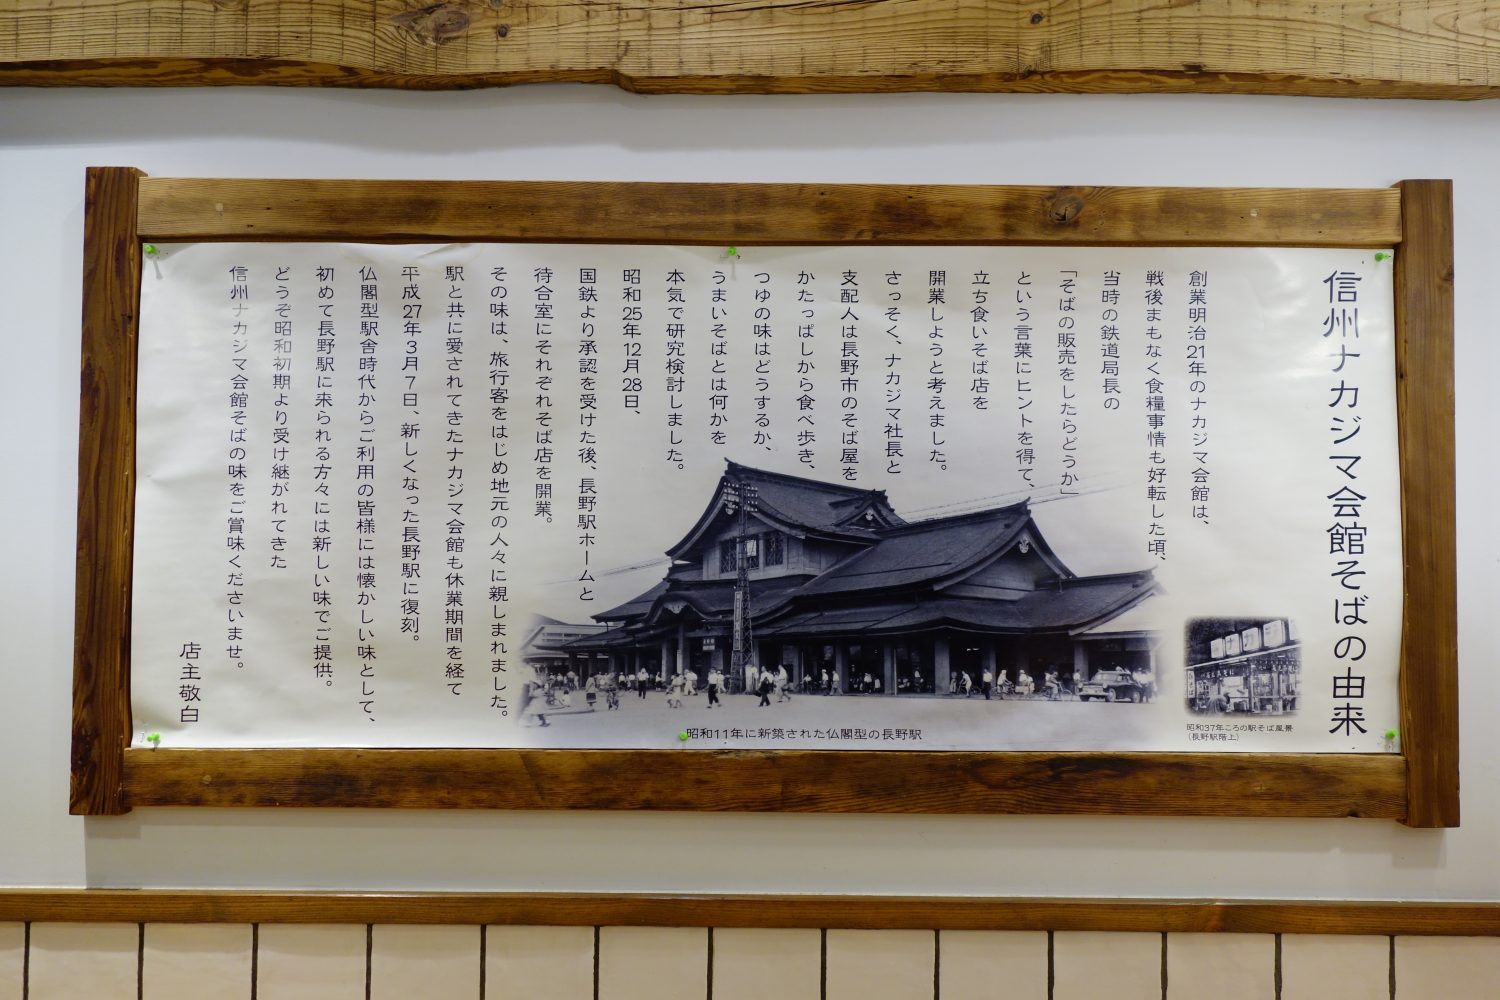 信州ナカジマ会館そばの由来
創業明治21年のナカジマ会館は、
戦後まもなく食糧事情も好転した頃、
当時の鉄道局長の
「そばの販売をしたらどうか」
という言葉にヒントを得て、
立ち食いそば店を
開業しようと考えました。
さっそく、ナカジマ社長と
支配人は長野市のそば屋を
かたっぱしから食べ歩き、
つゆの味はどうするか、
うまいそばとは何かを
本気で研究検討しました。
昭和25年12月28日、
国鉄より承認を受けた後、長野駅ホームと
待合室にそれぞれそば店を開業。
その味は、旅行客をはじめ地元の人々に親しまれました。
駅と共に愛されてきたナカジマ会館も休業期間を経て
平成27年3月7日、新しくなった長野駅に復刻。
仏閣型駅舎時代からご利用の皆様には懐かしい味として、
初めて長野駅に来られる方々には新しい味でご提供。
どうぞ昭和初期より受け継がれてきた
信州ナカジマ会館そばの味をご賞味くださいませ。
店主敬白
昭和37年ころの駅そば風景
(長野駅階上)
昭和11年に新築された仏閣型の長野駅